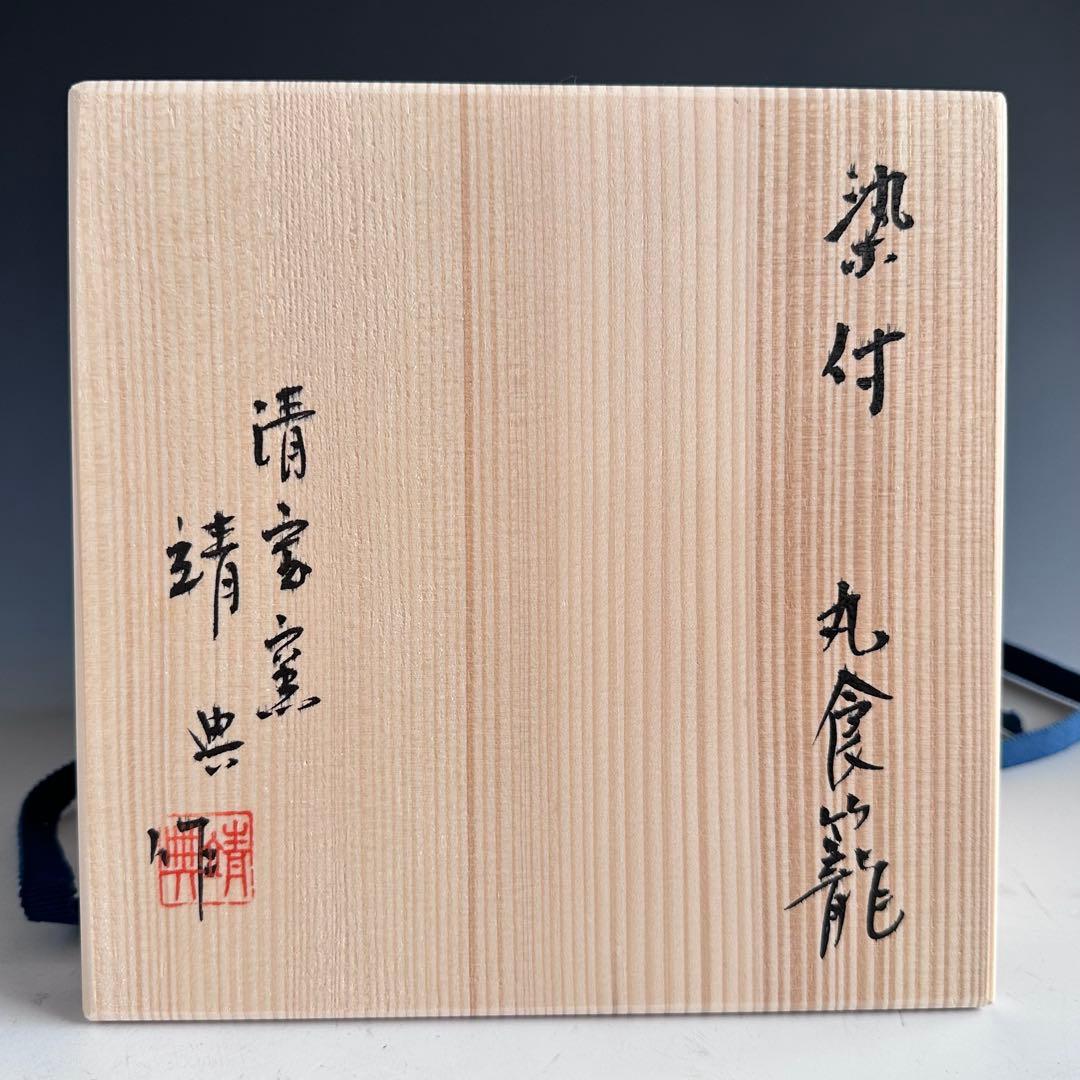 染付 丸食籠
清家窯
靖典作
靖典